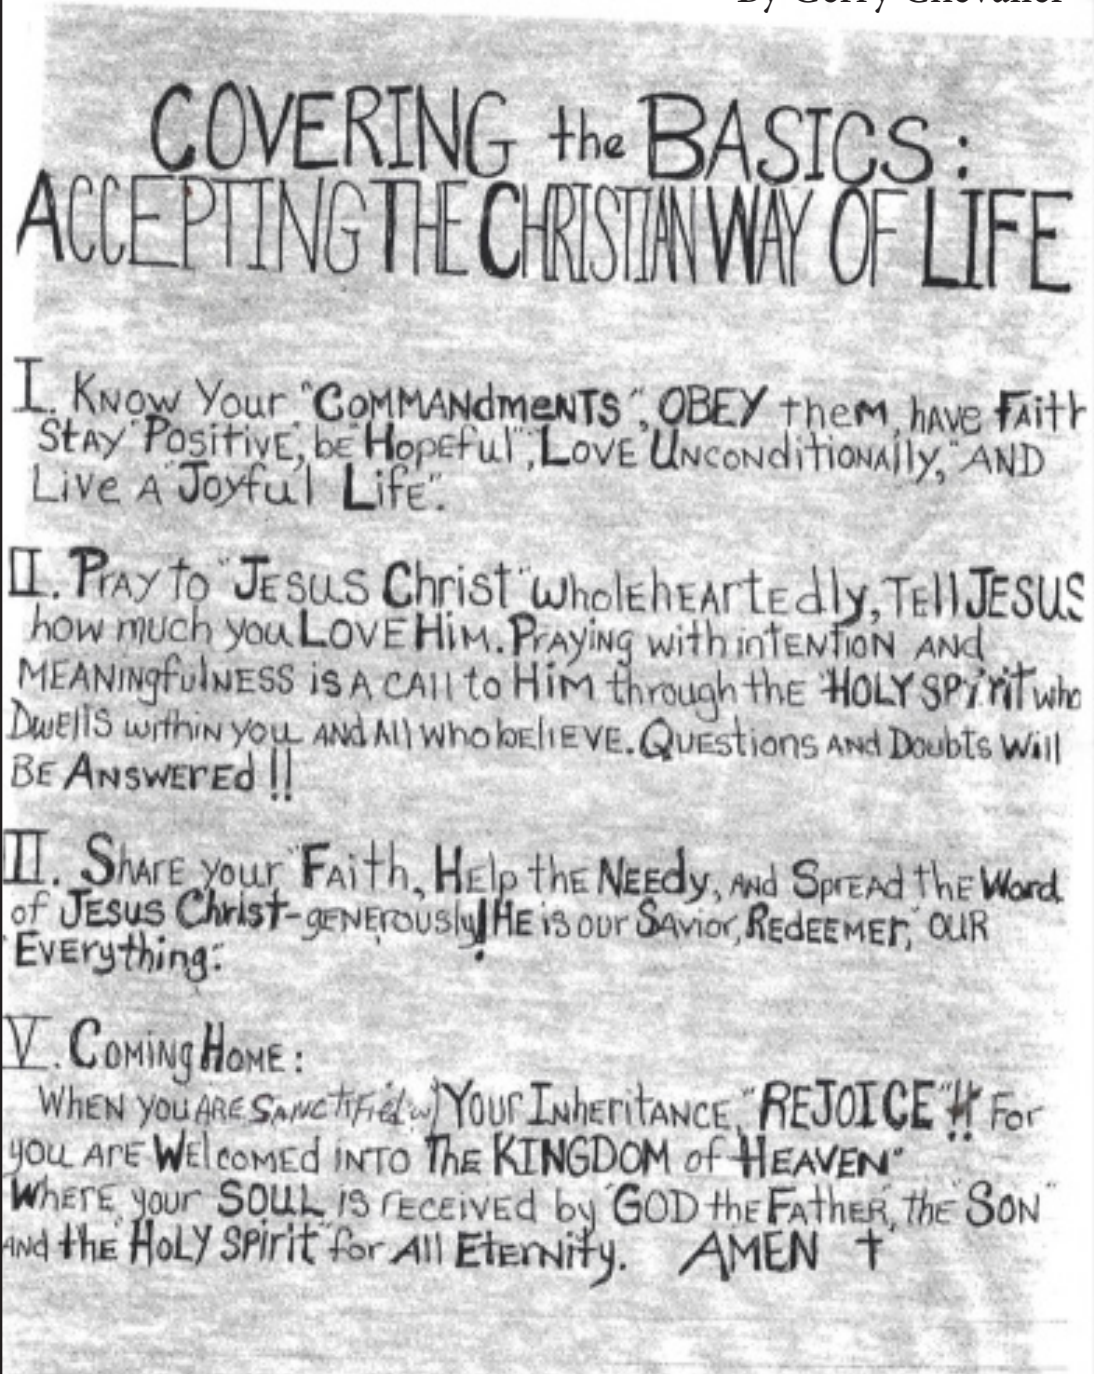 By Gerry Chevalier
COVERING the BASICS:
ACCEPTING THE CHRISTIAN WAY OF LIFE
I. KNOW YOUR "COMMANdmENTS", OBEY them, have FAith
STAY "POSITIVE, bE "HOPEful", LOVE UNCONditIONAlly," AND
LivE A "Joyful LifE".
II. PRAY to "JESUS Christ" wholEhEARtEdly, TEll JESUS
how much you LOVE HiM. PRAYiNg with iNtENTiON AND
MEANiNgfulNESS is A CAll to HiM through thE "HOLY SPirit who
DwEllS withiN you AND All who bEliEVE. QUEStioNs AND Doubts Will
BE ANSWEREd!!
II. SHARE your "FAith, HElp thE NEEdy, AND SpREAD thE Word
of JESUS Christ-gENErously! HE is our SAvior, REdEEMEr," OUR
"EvErythiNg".
V. COMiNg HOME:
WHEN YOU ARE SANCtifiEd w/ YOUR INhEritANCE, "REJOICE"!! FOR
you ArE WElcOMEd iNTO ThE KINGDOM of HEAVEN"
WhErE your SOUL iS rECEiVEd by "GOD thE FAthER, thE "SON"
AND thE HOLY SPirit" for All EtErNity. AMEN †